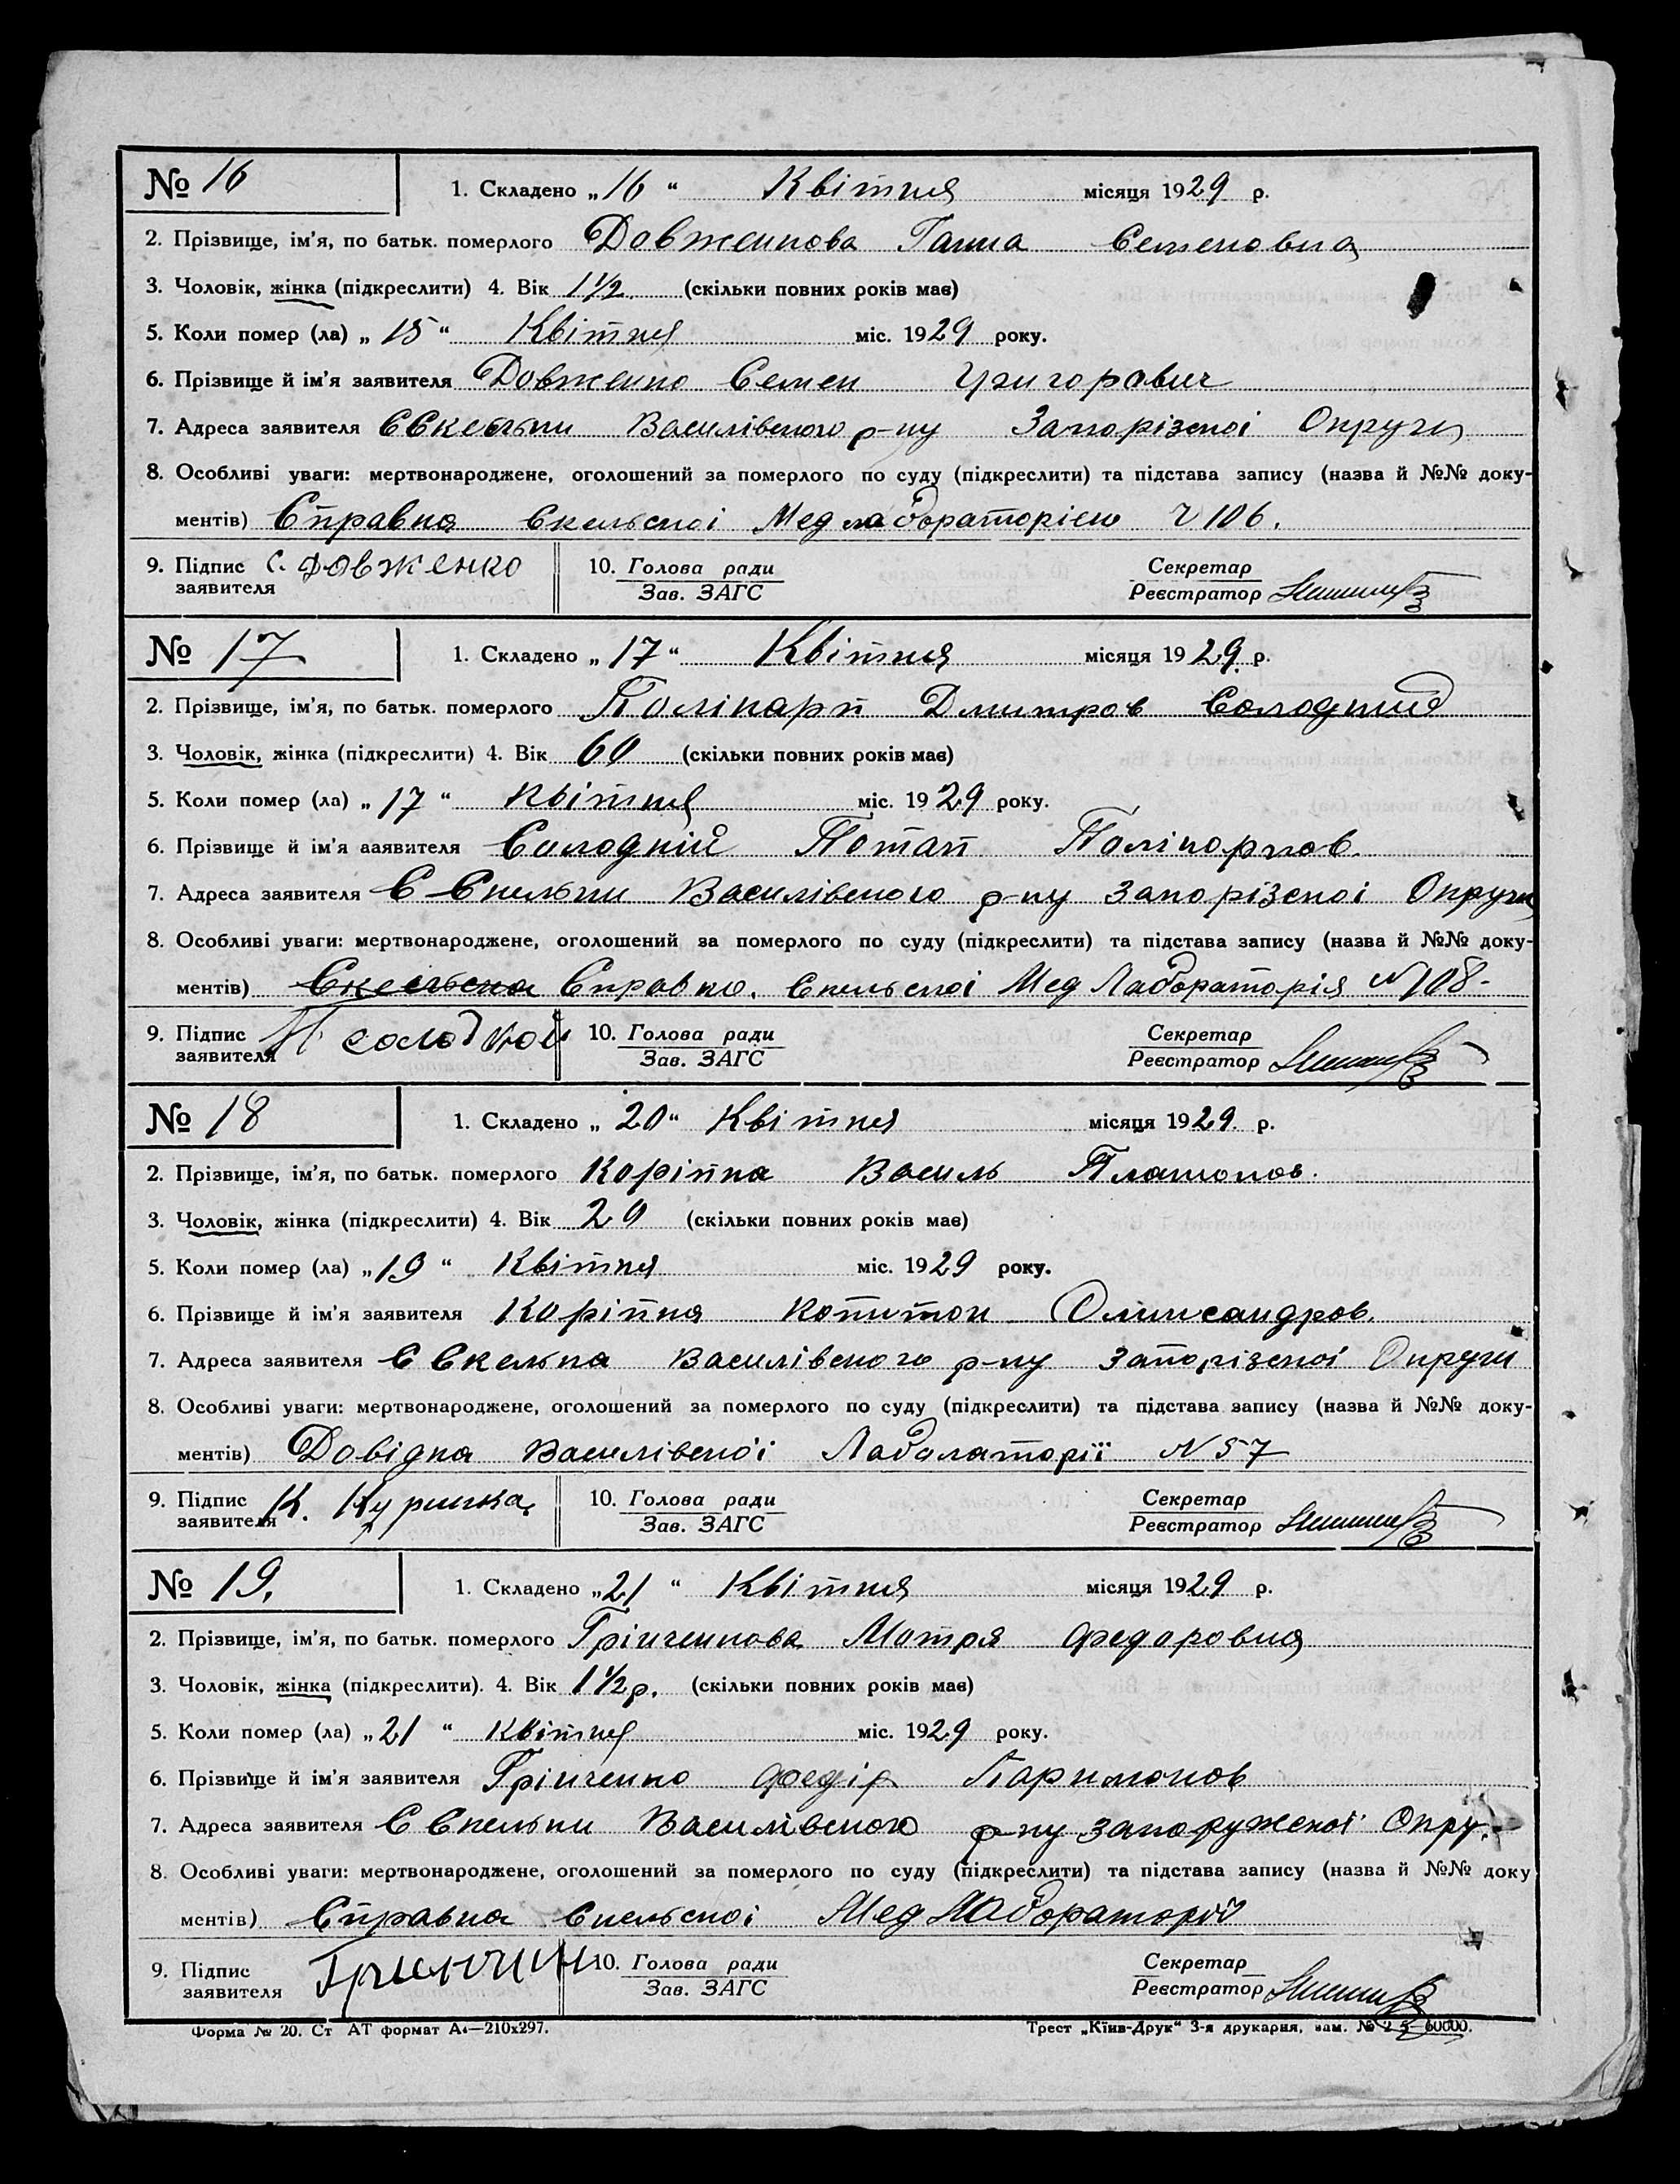 № 16 1. Складено „16“ Квітня місяця 1929 р.
2. Прізвище, ім’я, по батьк. померлого Довженкова Ганна Семеновна
3. Чоловік, жінка (підкреслити) 4. Вік 1 1/2 (скільки повних років має)
5. Коли помер (ла) „15“ Квітня міс. 1929 року.
6. Прізвище й ім’я заявителя Довженко Семен
7. Адреса заявителя С Скельки Василівського р-ну Запорізської Округи
8. Особливі уваги: мертвонароджене, оголошений за померлого по суду (підкреслити) та підстава запису (назва й №№ доку-
ментів) Справка Скельської Мед лабораторією Ч 106.
9. Підпис С. Довженко 10. Голова ради Секретар
заявителя Зав. ЗАГС Реєстратор
№ 17 1. Складено „17“ Квітня місяця 1929. р.
2. Прізвище, ім’я, по батьк. померлого Полікарп Дмитров Солодкий
3. Чоловік, жінка (підкреслити) 4. Вік 60 (скільки повних років має)
5. Коли помер (ла) „17“ Квітня міс. 1929 року.
6. Прізвище й ім’я заявителя Солодкий Потап Полікарпов.
7. Адреса заявителя С Скельки Василівського р-ну Запорізської Округи
8. Особливі уваги: мертвонароджене, оголошений за померлого по суду (підкреслити) та підстава запису (назва й №№ доку-
ментів) Скельська Справка. Скельської Мед Лабораторія № 108-
9. Підпис П Солодкой 10. Голова ради Секретар
заявителя Зав. ЗАГС Реєстратор
№ 18 1. Складено „20“ Квітня місяця 1929. р.
2. Прізвище, ім’я, по батьк. померлого Коріпка Василь Платонов.
3. Чоловік, жінка (підкреслити) 4. Вік 20 (скільки повних років має)
5. Коли помер (ла) „19“ Квітня міс. 1929 року.
6. Прізвище й ім’я заявителя Коріпка Олександров.
7. Адреса заявителя С Скелька Василівського р-ну Запорізської Округи
8. Особливі уваги: мертвонароджене, оголошений за померлого по суду (підкреслити) та підстава запису (назва й №№ доку-
ментів) Довідка Василівської Лабалаторії № 57
9. Підпис К. 10. Голова ради Секретар
заявителя Зав. ЗАГС Реєстратор
№ 19. 1. Складено „21“ Квітня місяця 1929 р.
2. Прізвище, ім’я, по батьк. померлого Грінченкова Мотря Федоровна
3. Чоловік, жінка (підкреслити). 4. Вік 1 1/2 р. (скільки повних років має)
5. Коли помер (ла) „21“ Квітня міс. 1929 року.
6. Прізвище й ім’я заявителя Грінченко Федір Паримонов
7. Адреса заявителя С Скельки Василівського р-ну Запоружської Окру.
8. Особливі уваги: мертвонароджене, оголошений за померлого по суду (підкреслити) та підстава запису (назва й №№ доку
ментів) Справка Скельської Мед Лабораторії
9. Підпис Гринчин 10. Голова ради Секретар
заявителя Зав. ЗАГС Реєстратор
Форма № 20. Ст АТ формат А4—210x297. Трест „Київ-Друк“ 3-я друкарня, зам. №